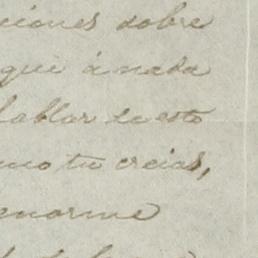 ciones sobre
que á nada
hablar de esto
mo tu creias,
enorme